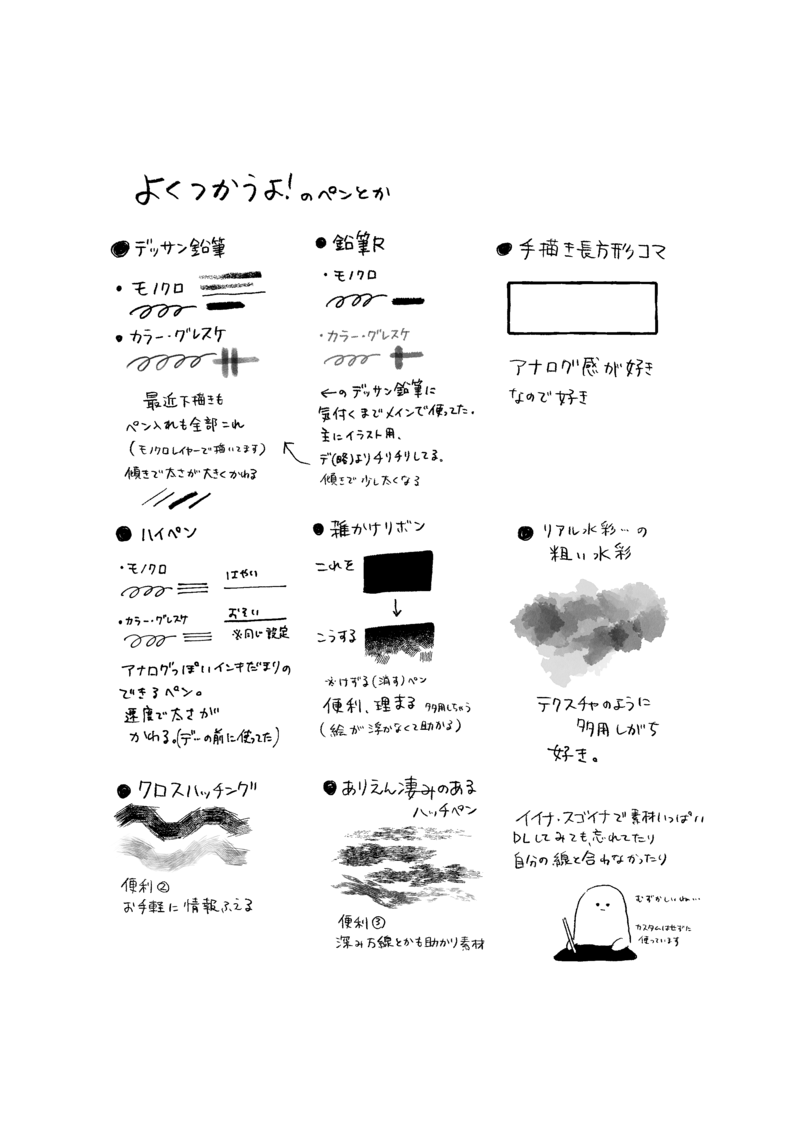 よくつかうよ!のペンとか
●デッサン鉛筆
・モノクロ
・カラー・グレスケ
最近下描きも
ペン入れも全部これ
(モノクロレイヤーで描いてます)
傾きで太さが大きくかわる
●鉛筆R
・モノクロ
・カラー・グレスケ
←のデッサン鉛筆に
気付くまでメインで使ってた.
主にイラスト用、
デ(略)よりチリチリしてる。
傾きで少し太くなる
●手描き長方形コマ
アナログ感が好き
なので好き
●ハイペン
・モノクロ
はやい
・カラー・グレスケ
おそい
※同じ設定
アナログっぽいインキだまりの
できるペン。
速度で太さが
かわる。(デ…の前に使ってた)
●雑かけリボン
これを
↓
こうする
※けずる(消す)ペン
便利、埋まる 多用しちゃう
(絵が浮かなくて助かる)
●リアル水彩…の
粗い水彩
テクスチャのように
多用しがち
好き。
●クロスハッチング
便利②
お手軽に情報ふえる
●ありえん凄みのある
ハッチペン
便利③
深み方線とかも助かり素材
イイナ・スゴイナで素材いっぱい
DLしてみても、忘れてたり
自分の線と合わなかったり
むずかしいね…
カスタムはせずに
使っています